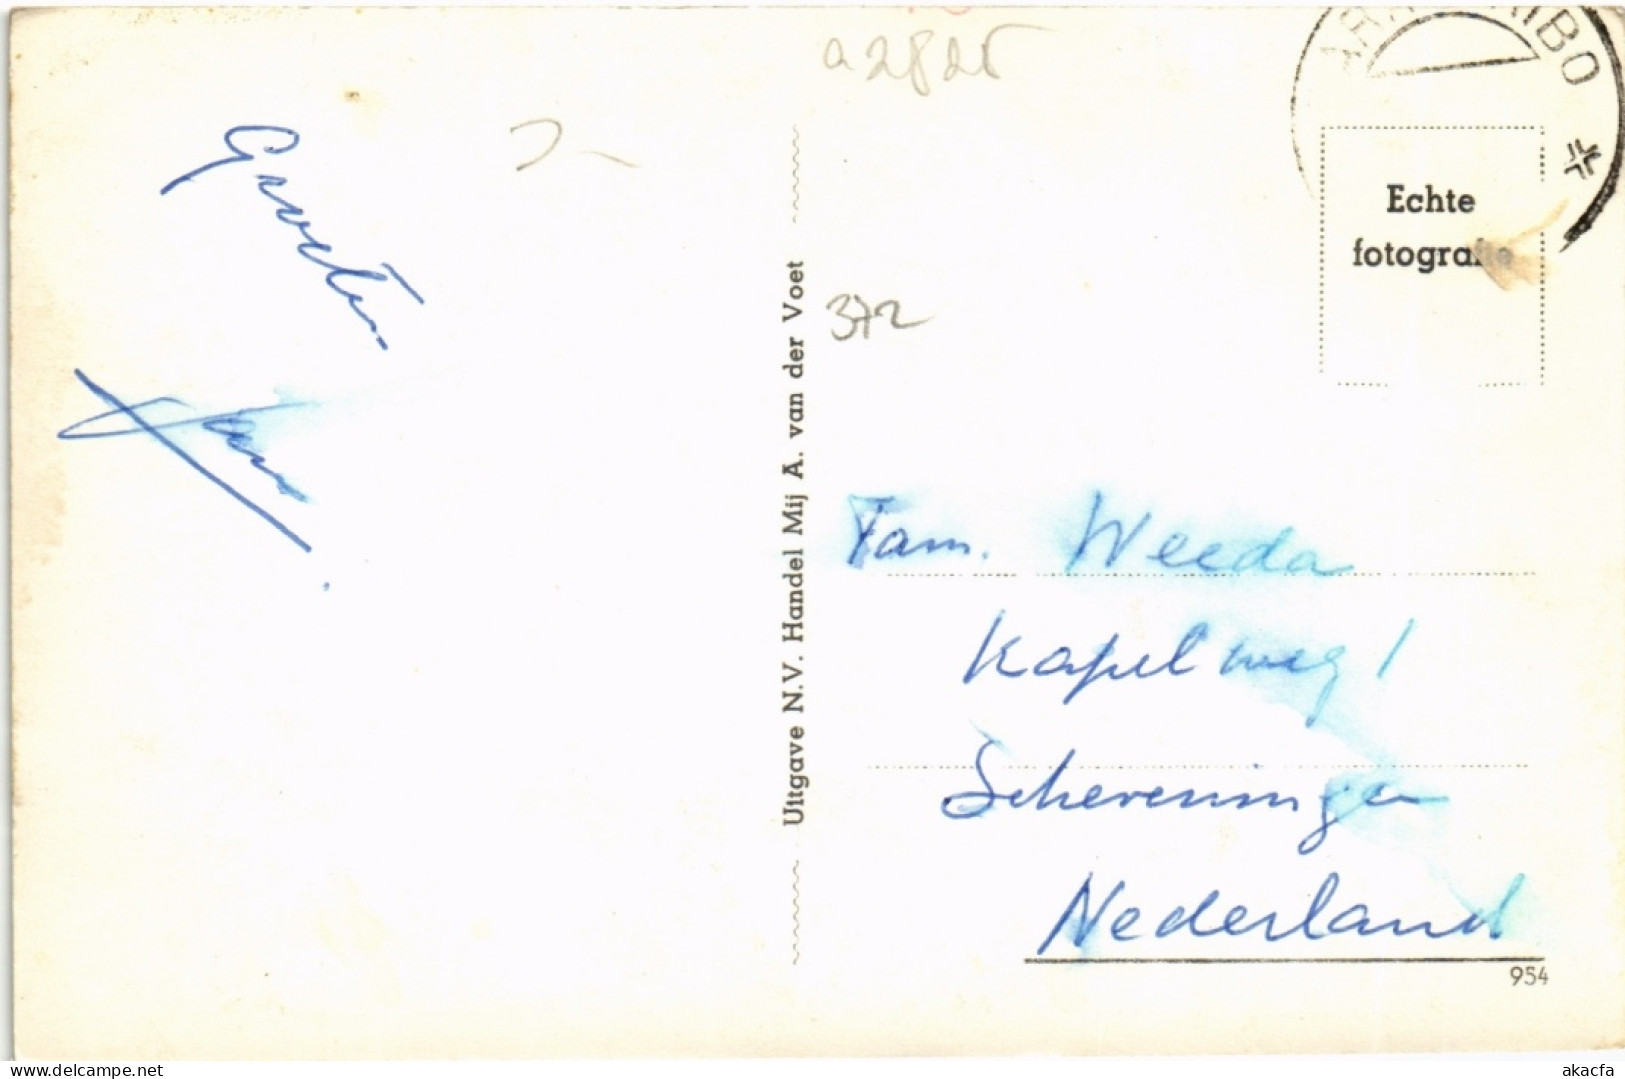 a2825
7-
Groeten
372
Echte
fotografie
Uitgave N.V. Handel Mij A. van der Voet
Fam. Weeda
Kapelweg 1
Scheveningen
Nederland
954
delcampe.net
akacfa